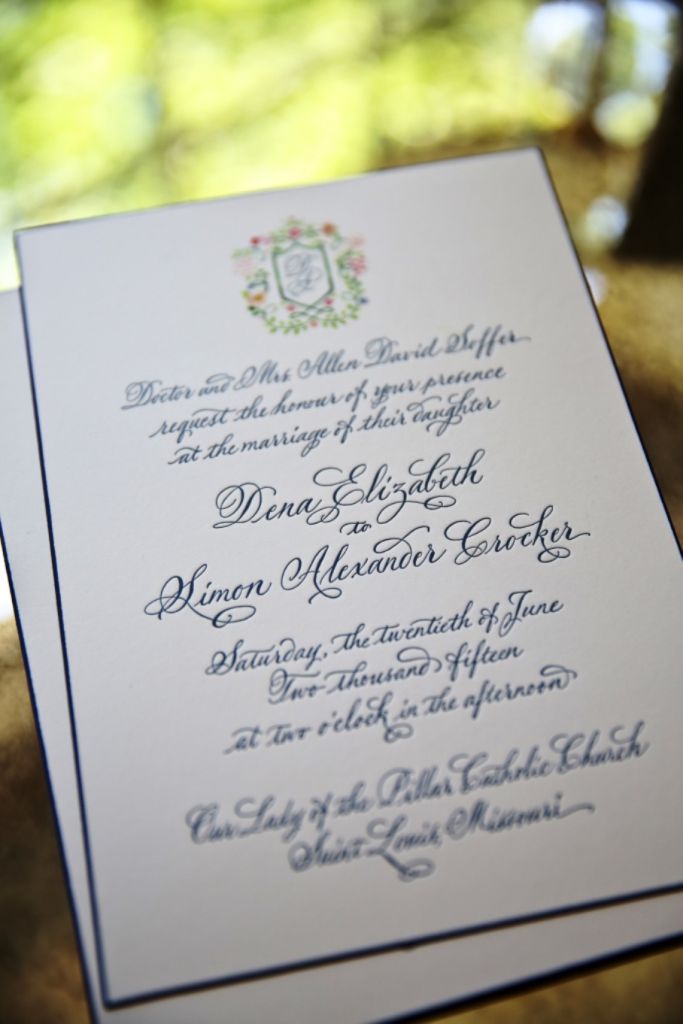 Doctor and Mrs Allen David Soffer
request the honour of your presence
at the marriage of their daughter
Dena Elizabeth
to
Simon Alexander Crocker
Saturday, the twentieth of June
Two thousand fifteen
at two o'clock in the afternoon
Our Lady of the Pillar Catholic Church
Saint Louis, Missouri